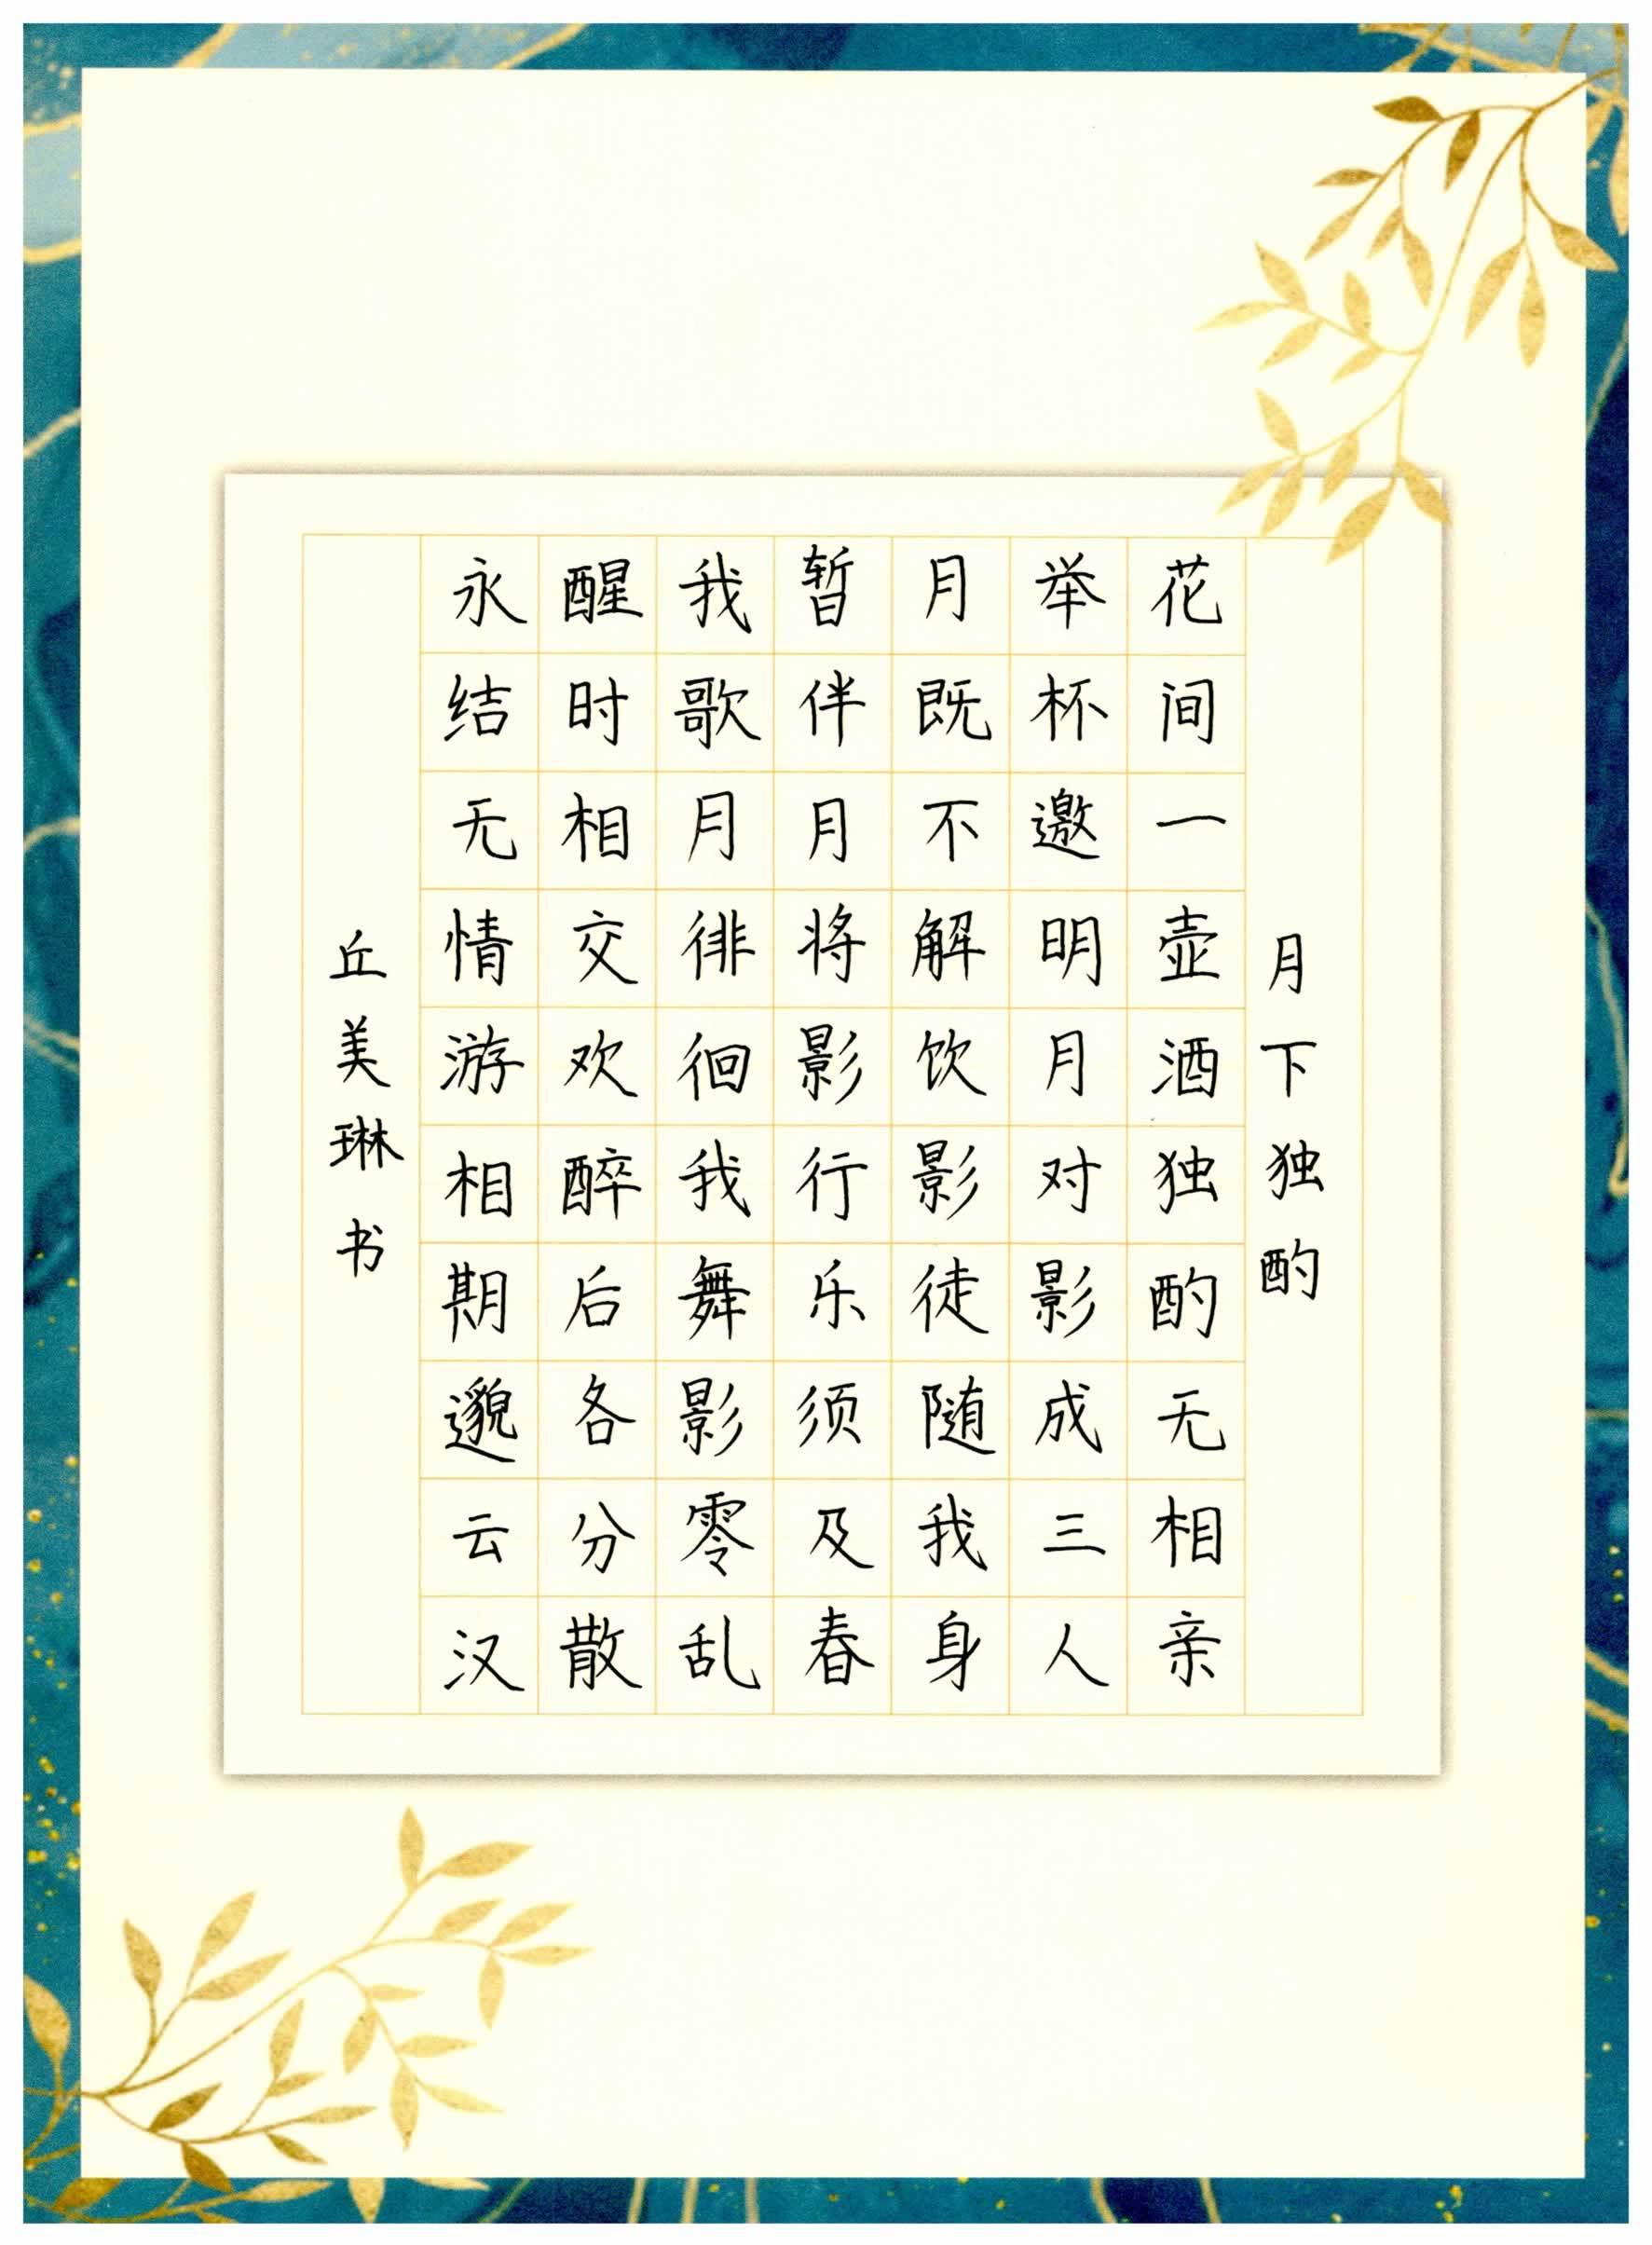 月下独酌
花间一壶酒独酌无相亲
举杯邀明月对影成三人
月既不解饮影徒随我身
暂伴月将影行乐须及春
我歌月徘徊我舞影零乱
醒时相交欢醉后各分散
永结无情游相期邈云汉
丘美琳书